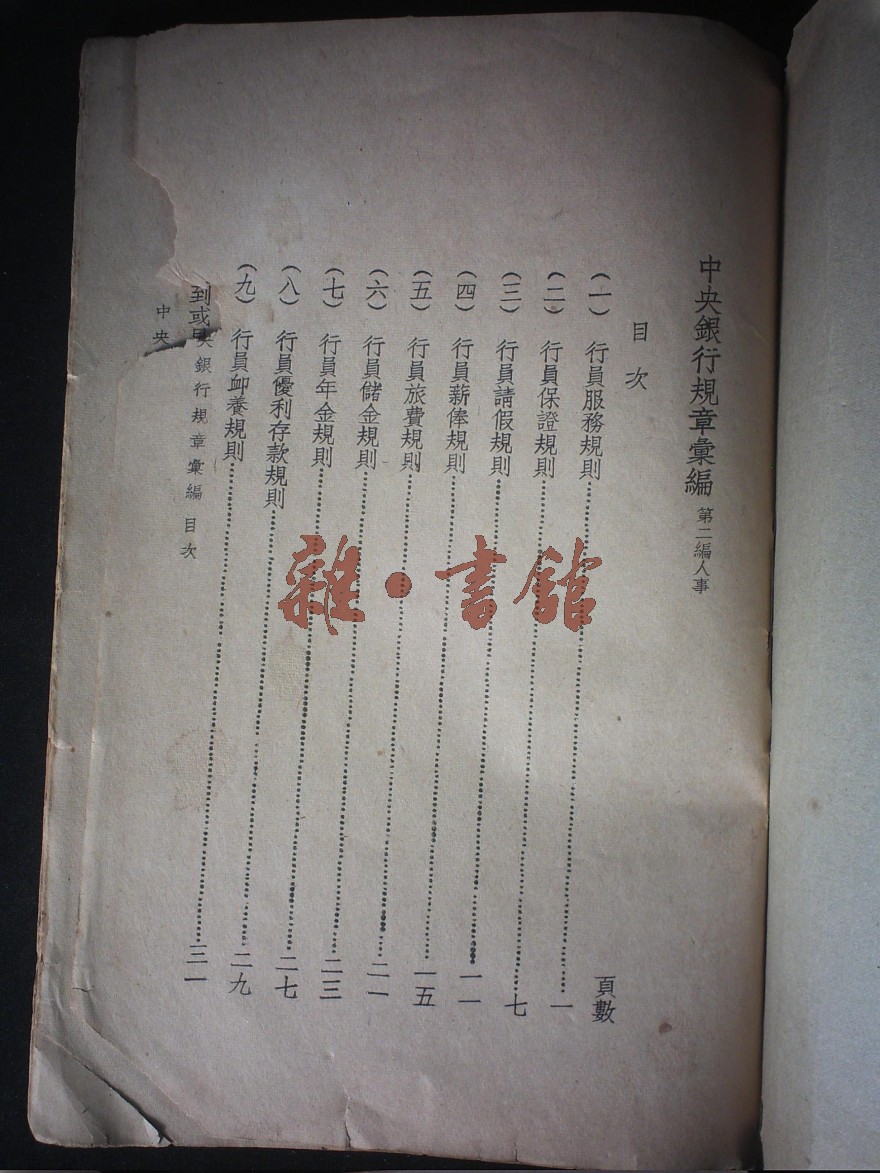 中央銀行規章彙編 第二編人事
目次
頁數
(一) 行員服務規則……一
(二) 行員保證規則……七
(三) 行員請假規則……一一
(四) 行員薪俸規則……一五
(五) 行員旅費規則……二一
(六) 行員儲金規則……二三
(七) 行員年金規則……二七
(八) 行員優利存款規則……二九
(九) 行員卹養規則……三一
到或
央銀行規章彙編 目次
中央
雜·書館